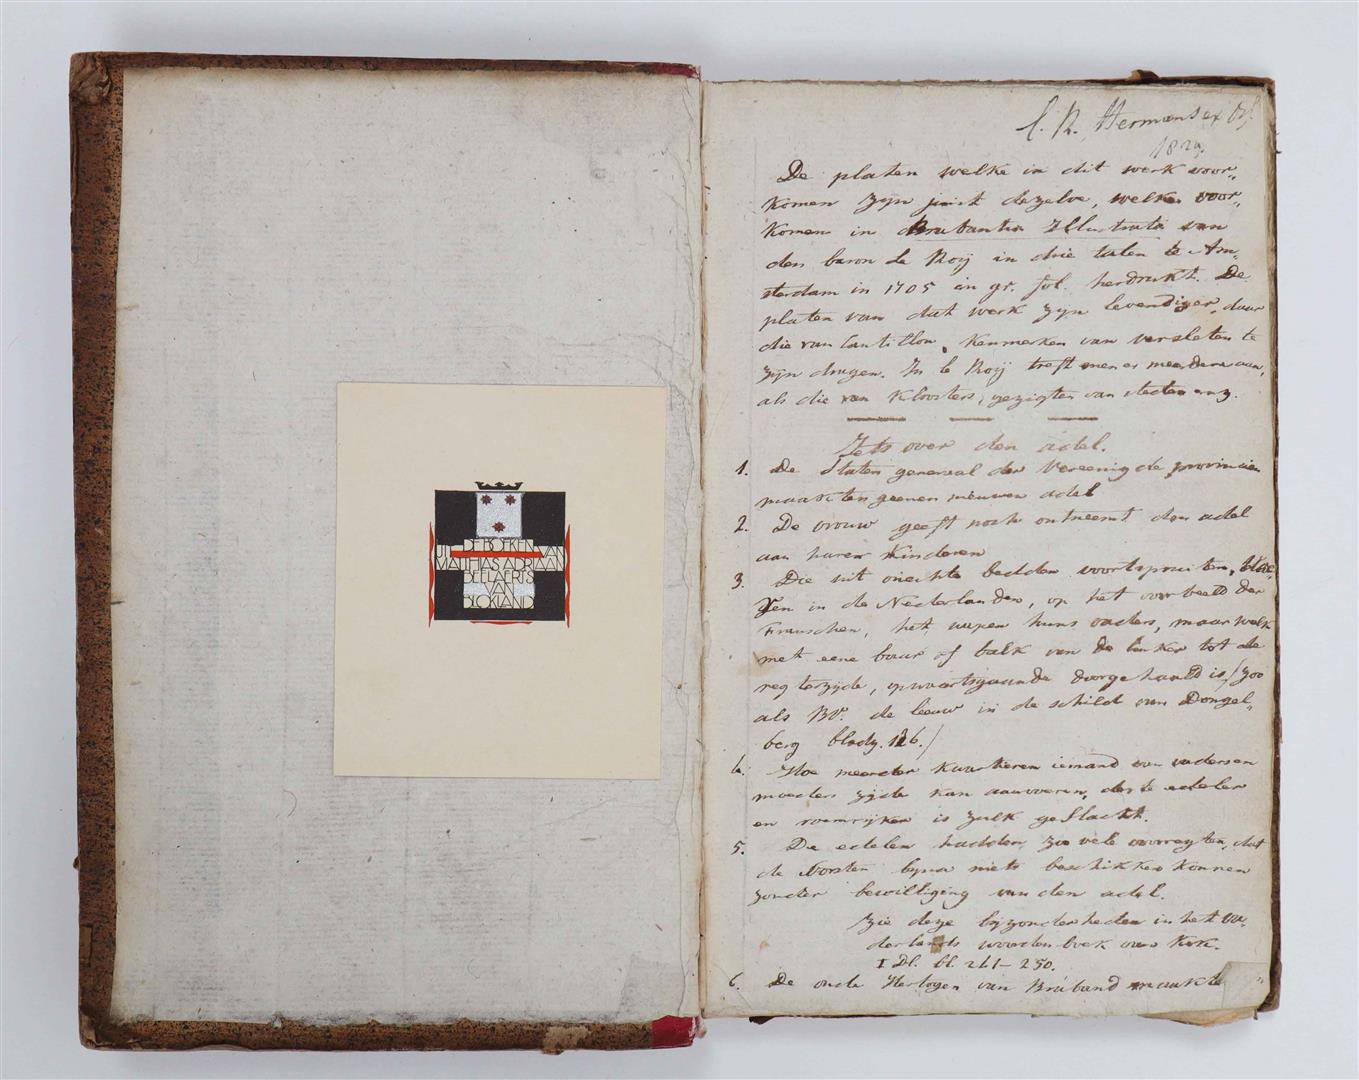 UIT DE BOEKEN VAN
MATTHIAS ADRIAAN
BEELAERTS
VAN
BLOKLAND
C. R. Hermans ex
1829.
De platen welke in dit werk voor„
komen zijn juist dezelve, welke voor„
komen in de Brabantia Illustrata van
den baron Le Roij in drie talen te Am„
sterdam in 1705 in gr. fol. herdrukt. De
platen van dat werk zijn levendiger, daar
die van Cantillon, kenmerken van versleten te
zijn dragen. In le Roij treft men er meerdere aan,
als die van Kloosters, gezigten van steden enz.
Iets over den adel.
1. De Staten generaal der Vereenigde provincien
maakten geenen nieuwen adel
2. De vrouw geeft noch ontneemt den adel
aan haren Kinderen
3. Die uit onechte bedden voortspruiten,
in de Nederlanden, op het voorbeeld der
Franschen, het wapen huns vaders, maar welk
met eene baar of balk van de linker tot de
regterzijde, opwaartsgaande doorgehaald is / zoo
als BV. de leeuw in de schild van Dongel„
berg bladz. 126. /
4. Hoe meerder Kwartieren iemand van vaders en
moeders zijde kan aanvoeren, des te edeler
en roemrijker is zulk geslacht.
5. De edelen hadden zoo vele voorregten, dat
de Vorsten bijna niets beschikken konnen
zonder bewilliging van den adel.
Zie deze bijzonderheden in het va„
derlands woordenboek van Kok.
I Dl. bl. 241–250.
6. De oude Hertogen van Braband maakte